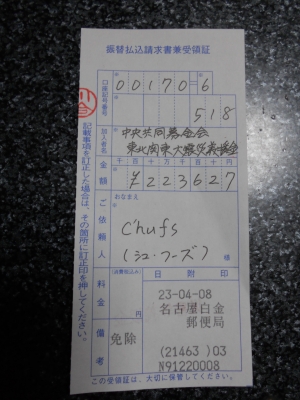 振替払込請求書兼受領証
口座記号番号
00170=6
518
加入者名
中央共同募金会
東北関東大震災義援金
金額
千 百 十 万 千 百 十 円
¥223627
ご依頼人
おなまえ
C'hufs
(シュ・フーズ)
様
料金
(消費税込み)
円
備考
免除
日附印
23-04-08
名古屋白金
郵便局
(21463)03
N91220008
記載事項を訂正した場合は、その箇所に訂正印を押してください。
この受領証は、大切に保管してください。